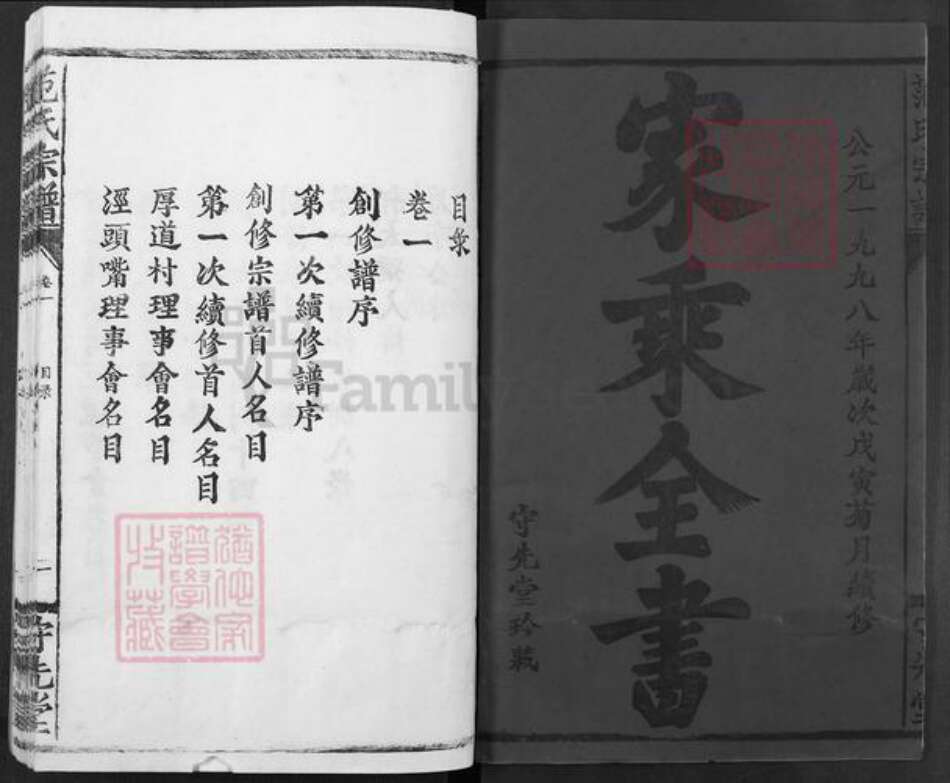 公元一九九八年歲次戊寅菊月續修
家乘全書
守先堂珍藏
目录
卷一
創修譜序
第一次續修譜序
創修宗譜首人名目
第一次續修首人名目
厚道村理事會名目
涇頭嘴理事會名目
范氏宗譜
卷一
目录
一
守先堂
Family
譜學會
特藏